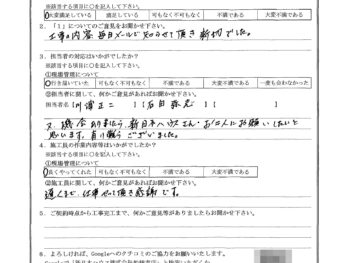 ※該当する項目に○を記入して下さい。
大変満足している 満足している 可も不可も無い 不満である 大変不満である
2.「1」についてのご意見をお聞かせ下さい。
工事の内容 毎日メールで知らせて頂き 親切でした。
3. 担当者の対応はいかがでしたか?
※該当する項目に○を記入して下さい。
①現場管理について
行き届いていた 可も不可も無い 不満である 大変不満である 一度も会わなかった
②担当者に関して、何かご意見があればお聞かせ下さい。
担当者名
又、機会ありましたら 新日本ハウスさん・お二人にお願いしたいと
思います。有り難うございました。
4. 施工員の作業内容等はいかがでしたか?
※該当する項目に○を記入して下さい。
①現場管理について
良くやってくれた 可も不可も無い 不満である 大変不満である
②施工員に関して、何かご意見があればお聞かせ下さい。
達人まで、仕事せって頂き感謝です。
5. ご契約時点から工事完工まで、何かご意見等がありましたらお聞かせ下さい。
6. よろしければ、Googleへのクチコミとのご協力をお願いいたします。